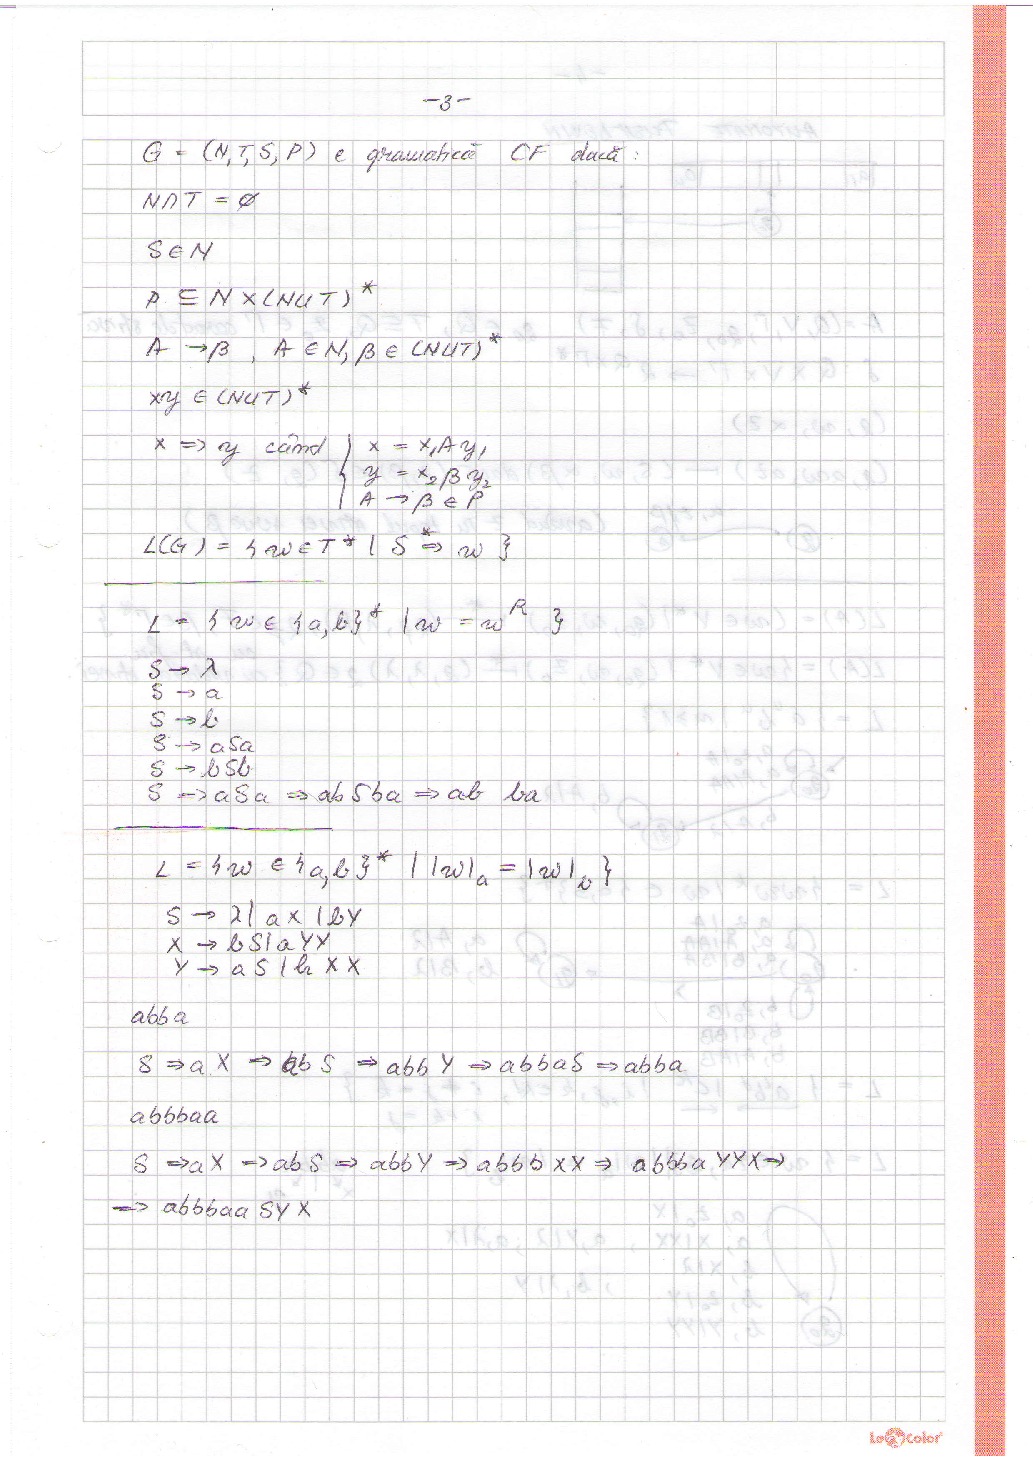 -3-
G = (N, T, S, P) e gramatică CF dacă:
N∩T = ∅
S ∈ N
P ⊆ N × (N∪T)*
A → β, A ∈ N, β ∈ (N∪T)*
xy ∈ (N∪T)*
x ⇒ y când { x = x₁Ay₁
y = x₂βy₂
A → β ∈ P
L(G) = {w ∈ T* | S *⇒ w }
L = {w ∈ {a,b}* | w = w^R }
S → λ
S → a
S → b
S → aSa
S → bSb
S → aSa ⇒ abSba ⇒ ab ba
L = {w ∈ {a,b}* | |w|a = |w|b }
S → λ | aX | bY
X → bS | aYX
Y → aS | bXX
abba
S ⇒ aX ⇒ abS ⇒ abbY ⇒ abbaS ⇒ abba
abbbaa
S ⇒ aX ⇒ abS ⇒ abbY ⇒ abbbXX ⇒ abbbaYYX ⇒
⇒ abbbaaSYX
LecColor